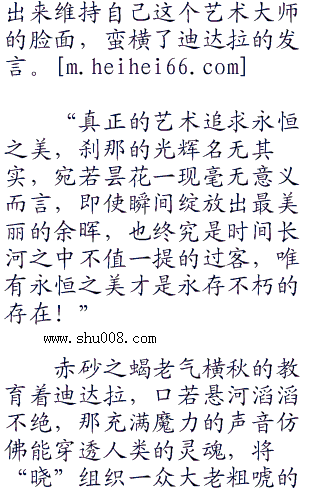 出来维持自己这个艺术大师
的脸面，蛮横了迪达拉的发
言。[m.heihei66.com]
“真正的艺术追求永恒
之美，刹那的光辉名无其
实，宛若昙花一现毫无意义
而言，即使瞬间绽放出最美
丽的余晖，也终究是时间长
河之中不值一提的过客，唯
有永恒之美才是永存不朽的
存在！”
www.shu008.com
赤砂之蝎老气横秋的教
育着迪达拉，口若悬河滔滔
不绝，那充满魔力的声音仿
佛能穿透人类的灵魂，将
“晓”组织一众大老粗唬的